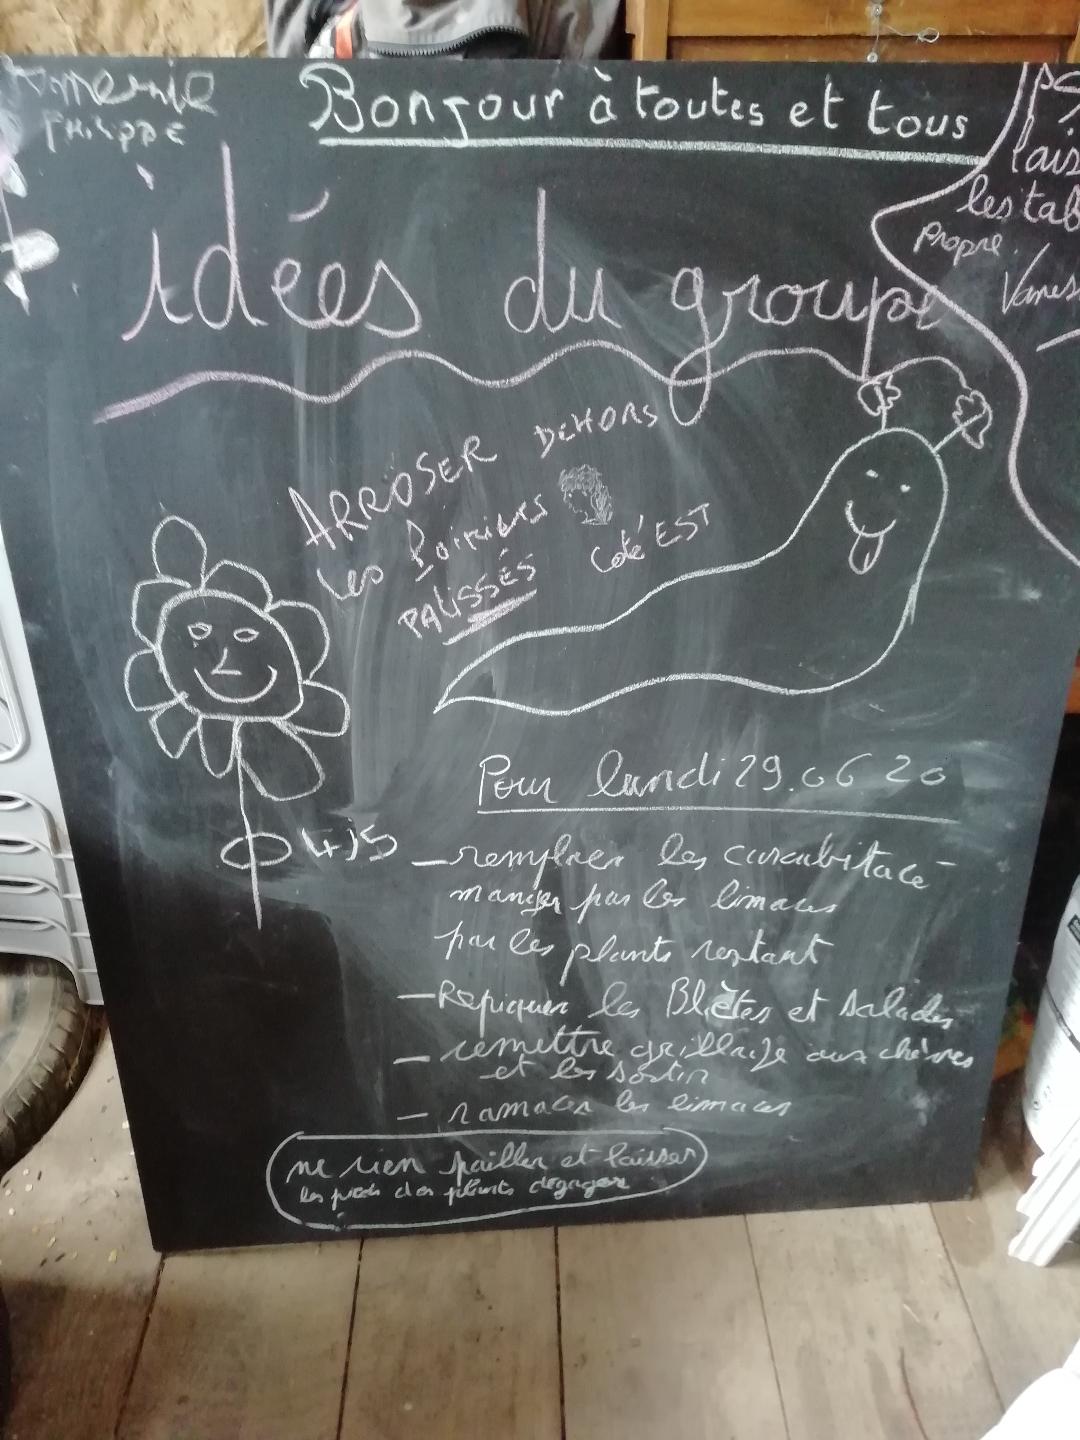 PHILIPPE
Bonjour à toutes et tous
idées du groupe
lais
les tab
propre
Vanes
ARROSER DEHORS
les poiriers
PALISSÉS coté EST
Pour lundi 29.06 20
4J5
– remplacer les cucurbitacé
manger par les limaces
par les plants restant
– Repiquer les Blètes et salades
– remettre grillage aux chèvres
et les sortir
– ramacer les limaces
ne rien pailler et laisser
les pieds des plants dégager